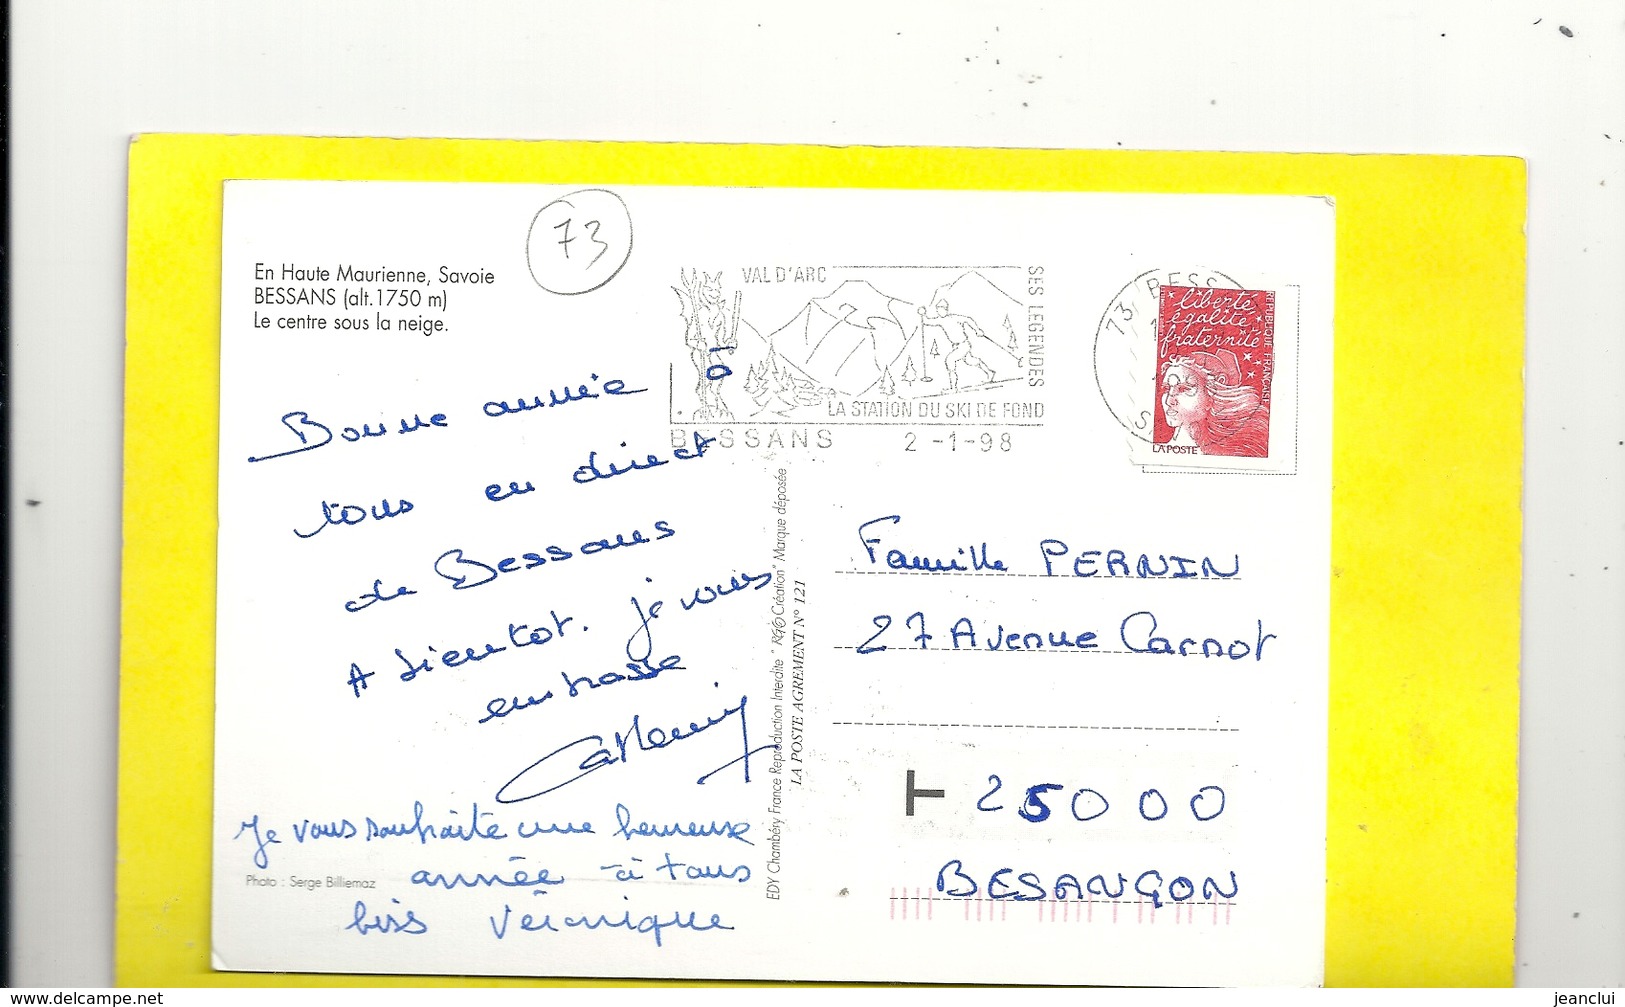 73
En Haute Maurienne, Savoie
BESSANS (alt.1750 m)
Le centre sous la neige.
VAL D'ARC
SES LEGENDES
LA STATION DU SKI DE FOND
BESSANS 2-1-98
73 BESS
liberté,
égalité
fraternité
REPUBLIQUE FRANÇAISE
LA POSTE
Bonne année à
tous en direct
de Bessans
A bientot. je vous
embrasse
Je vous souhaite une heureuse
année à tous
biss Véronique
Photo : Serge Billiemaz
EDY Chambéry France Reproduction Interdite "RGO Création" Marque déposée
LA POSTE AGREMENT N° 121
Famille PERNIN
27 Avenue Carnot
T 25000
BESANÇON
www.delcampe.net
jeanclui